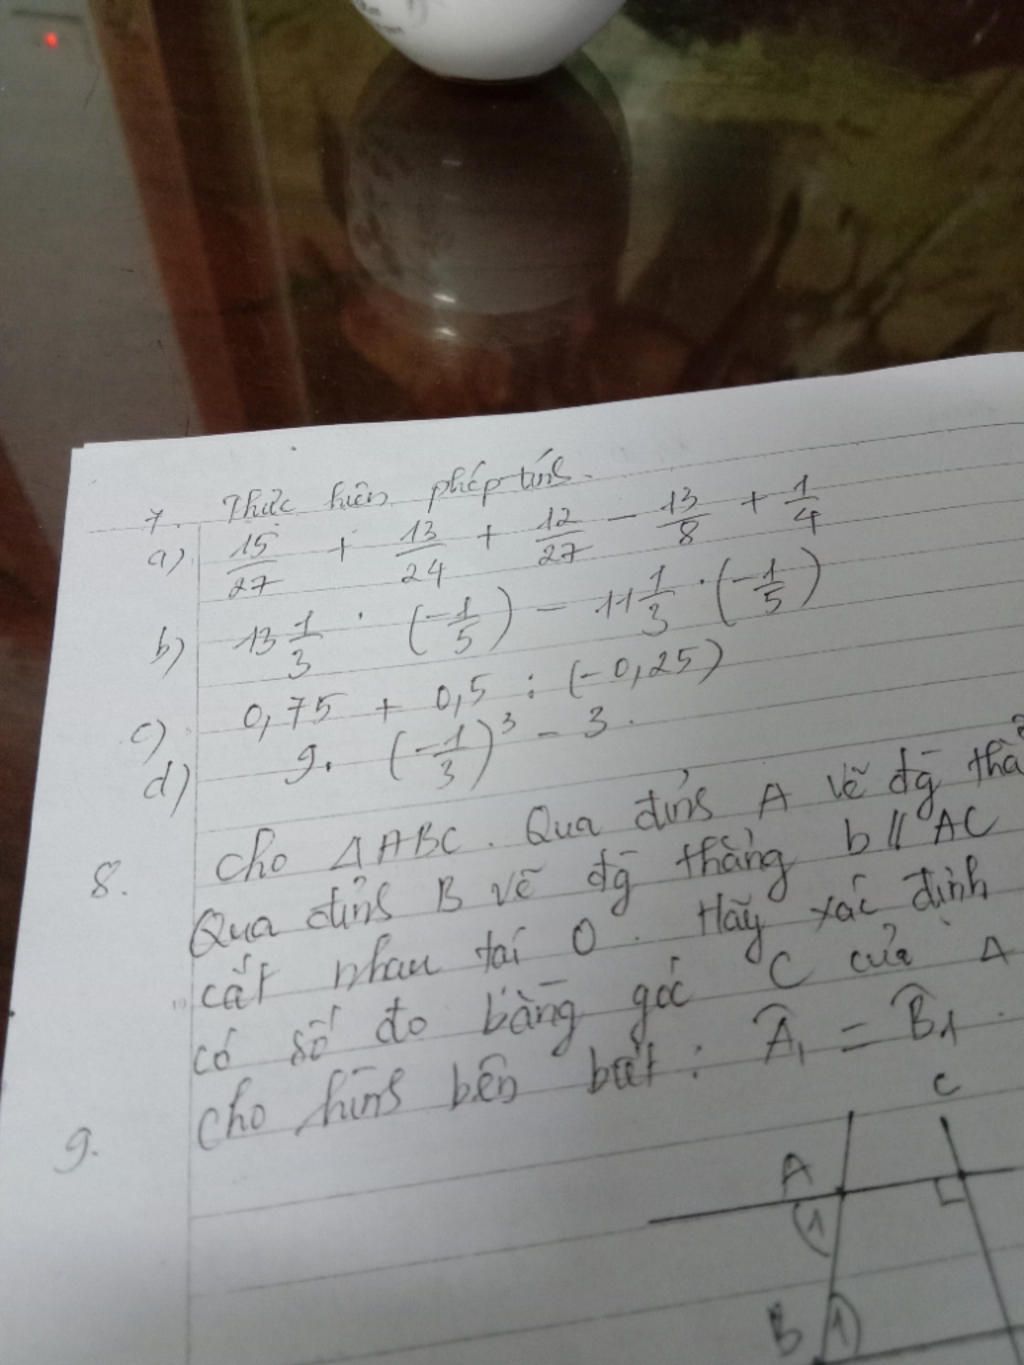 7. Thực hiện phép tính.
a) 15/27 + 13/24 + 12/27 - 13/8 + 1/4
b) 13 1/3 . (-1/5) - 11 1/3 . (-1/5)
c) 0,75 + 0,5 : (-0,25)
d) 9. (-1/3)³ - 3.
8. Cho △ABC. Qua đỉnh A vẽ đg
Qua đỉnh B vẽ đg thẳng b // AC
cắt nhau tại O. Hãy xác định
có số đo bằng góc C của Δ
9. Cho hình bên biết: Â₁ = B̂₁.
C
A
1
B 1